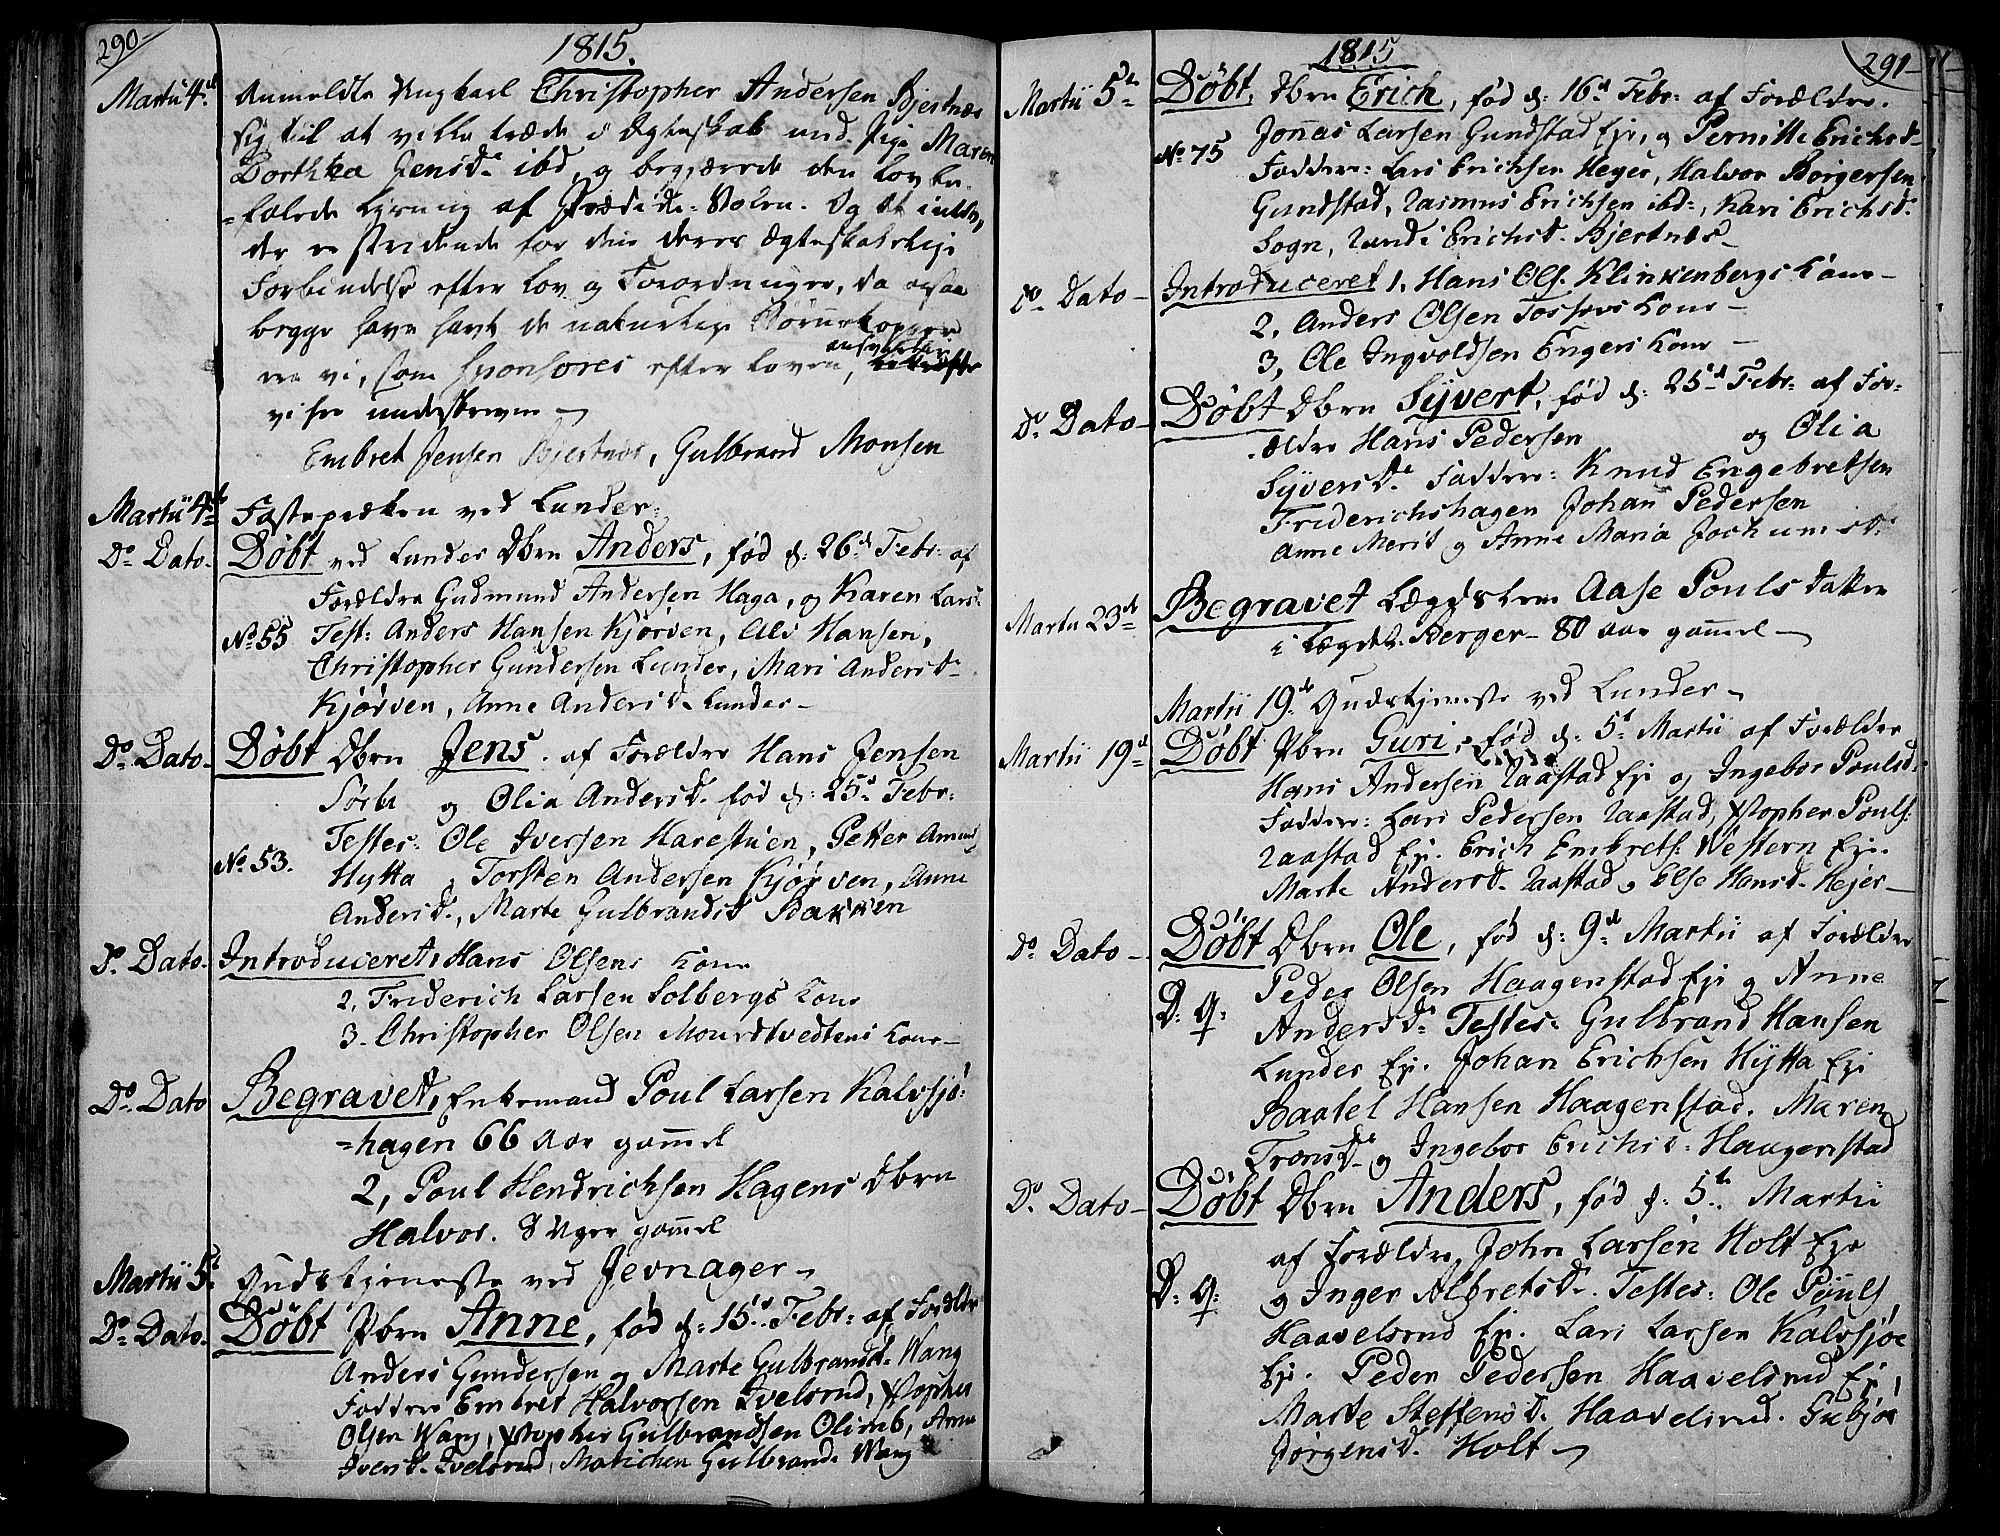 290
1815.
Martii 4de Anmeldte Ungkarl Christopher Andersen Bjertnæs
sig til at ville træde i Egteskab med Pige Maren
Dorthea Jensd. ibd, og begjærede den Lovbe-
=falede Lysning af Prædike-Stolen. Og at intet,
der er stridende for den deres Ægteskabelige
Forbindelse efter Lov og Forordninger, da ogsaa
begge have havt de naturlige Børnekopper
ere vi, som Sponsores efter Loven, ansvarlige
vi her underskrevne
Embret Jensen Bjertnæs, Gulbrand Monsen
Martii 4de Fastepræken ved Lunder
Do Dato. Døbt ved Lunder Dbrn Anders, fød d: 26de Febr: af
Forældre Gudmund Andersen Haga, og Karen Larsd.
No 55 Test: Anders Hansen Kjørven, Alv Hansen,
Christopher Gundersen Lunder, Mari Andersd.
Kjørven, Anne Andersd. Lunder
Do Dato. Døbt Dbrn Jens. af Forældre Hans Jensen
Sørli og Olia Andersd. fød d: 25de Febr:
Testes: Ole Iversen Harestuen, Petter Amund
No 53. Hytta, Torsten Andersen Kjørven, Anne
Andersd., Marte Gulbrandsd Bakken
Do Dato. Introduceret, Hans Olsens Kone
2, Friderich Larsen Solbergs Kone
3. Christopher Olsen Mourdtvedtens Kone
Do Dato Begravet, Enkemand Poul Larsen Kalvsjø-
=hagen 66 Aar gammel
2, Poul Hendrichsen Hagens Dbrn
Halvor. 8 Uger gammel
Martii 5te Gudstjeneste ved Jevnager
Do Dato. Døbt Pbrn Anne, fød d: 15de Febr: af Forældre
Anders Gundersen og Marte Gulbrandsd. Wang
Faddere Embret Halvorsen Ivelsrud, Xstopher
Olsen Wang, Xstopher Gulbrandsen Olimb, Anne
Iversd. Ivelsrud, Matichen Gulbrandsd. Wang
1815
291
Martii 5te Døbt, Dbrn Erich, fød d: 16de Febr: af Forældre.
Jonas Larsen Gundstad Eje, og Pernitte Erichsd.
No 75 Faddere: Lars Erichsen Heyer, Halvor Børgersen
Gundstad, Rasmus Erichsen ibd:, Kari Erichsd.
Sogn, Randi Erichsd. Bjertnæs
Do Dato Introduceret 1, Hans Ols. Klinkenbergs Kone
2, Anders Olsen Kone
3, Ole Ingvoldsen Engers Kone
Do Dato Døbt Dbrn Syvert, fød d: 25de Febr: af For-
ældre Hans Pedersen og Olia
Syversd. Faddere: Knud Engebretsen
Friderichshagen Johan Pedersen
Anne Meris og Anne Maria Jochumsd.
Martii 23de Begravet Lægdslem Aase Pouls datter
i Lægdet Berger 80 Aar gammel
Martii 19de Gudstjeneste ved Lunder
Martii 19de Døbt Pbrn Guri, fød d: 5te Martii af Forældre
Hans Andersen Raastad Eje og Ingebor Poulsd.
Faddere: Lars Pedersen Raastad, Xstopher Pouls:
Raastad Eje. Erich Embrets. Western Eje.
Marte Andersd. Raastad, Else Hansd. Hejer
Do Dato Døbt Dbrn Ole, fød d: 9de Martii af Forældre
Peder Olsen Haagenstad Eje og Anne
D: 9: Andersd. Testes: Gulbrand Hansen
Lunder Eje. Johan Erichsen Hytta Eje
Baatel Hansen Haagenstad. Maren
Tronsd. og Ingebor Erichsd: Haagenstad
Do Dato Døbt Dbrn Anders, fød d: 5te Martii
af Forældre John Larsen Holt Eje
D: 9: og Inger Albretsd. Testes: Ole Pouls
Haavelsrud Eje. Lars Larsen Kalvsjøe
Eje. Peder Pedersen Haavelsrud Eje,
Marte Steffensd. Haavelsrud. Gubjør
Jørgensd. Holt